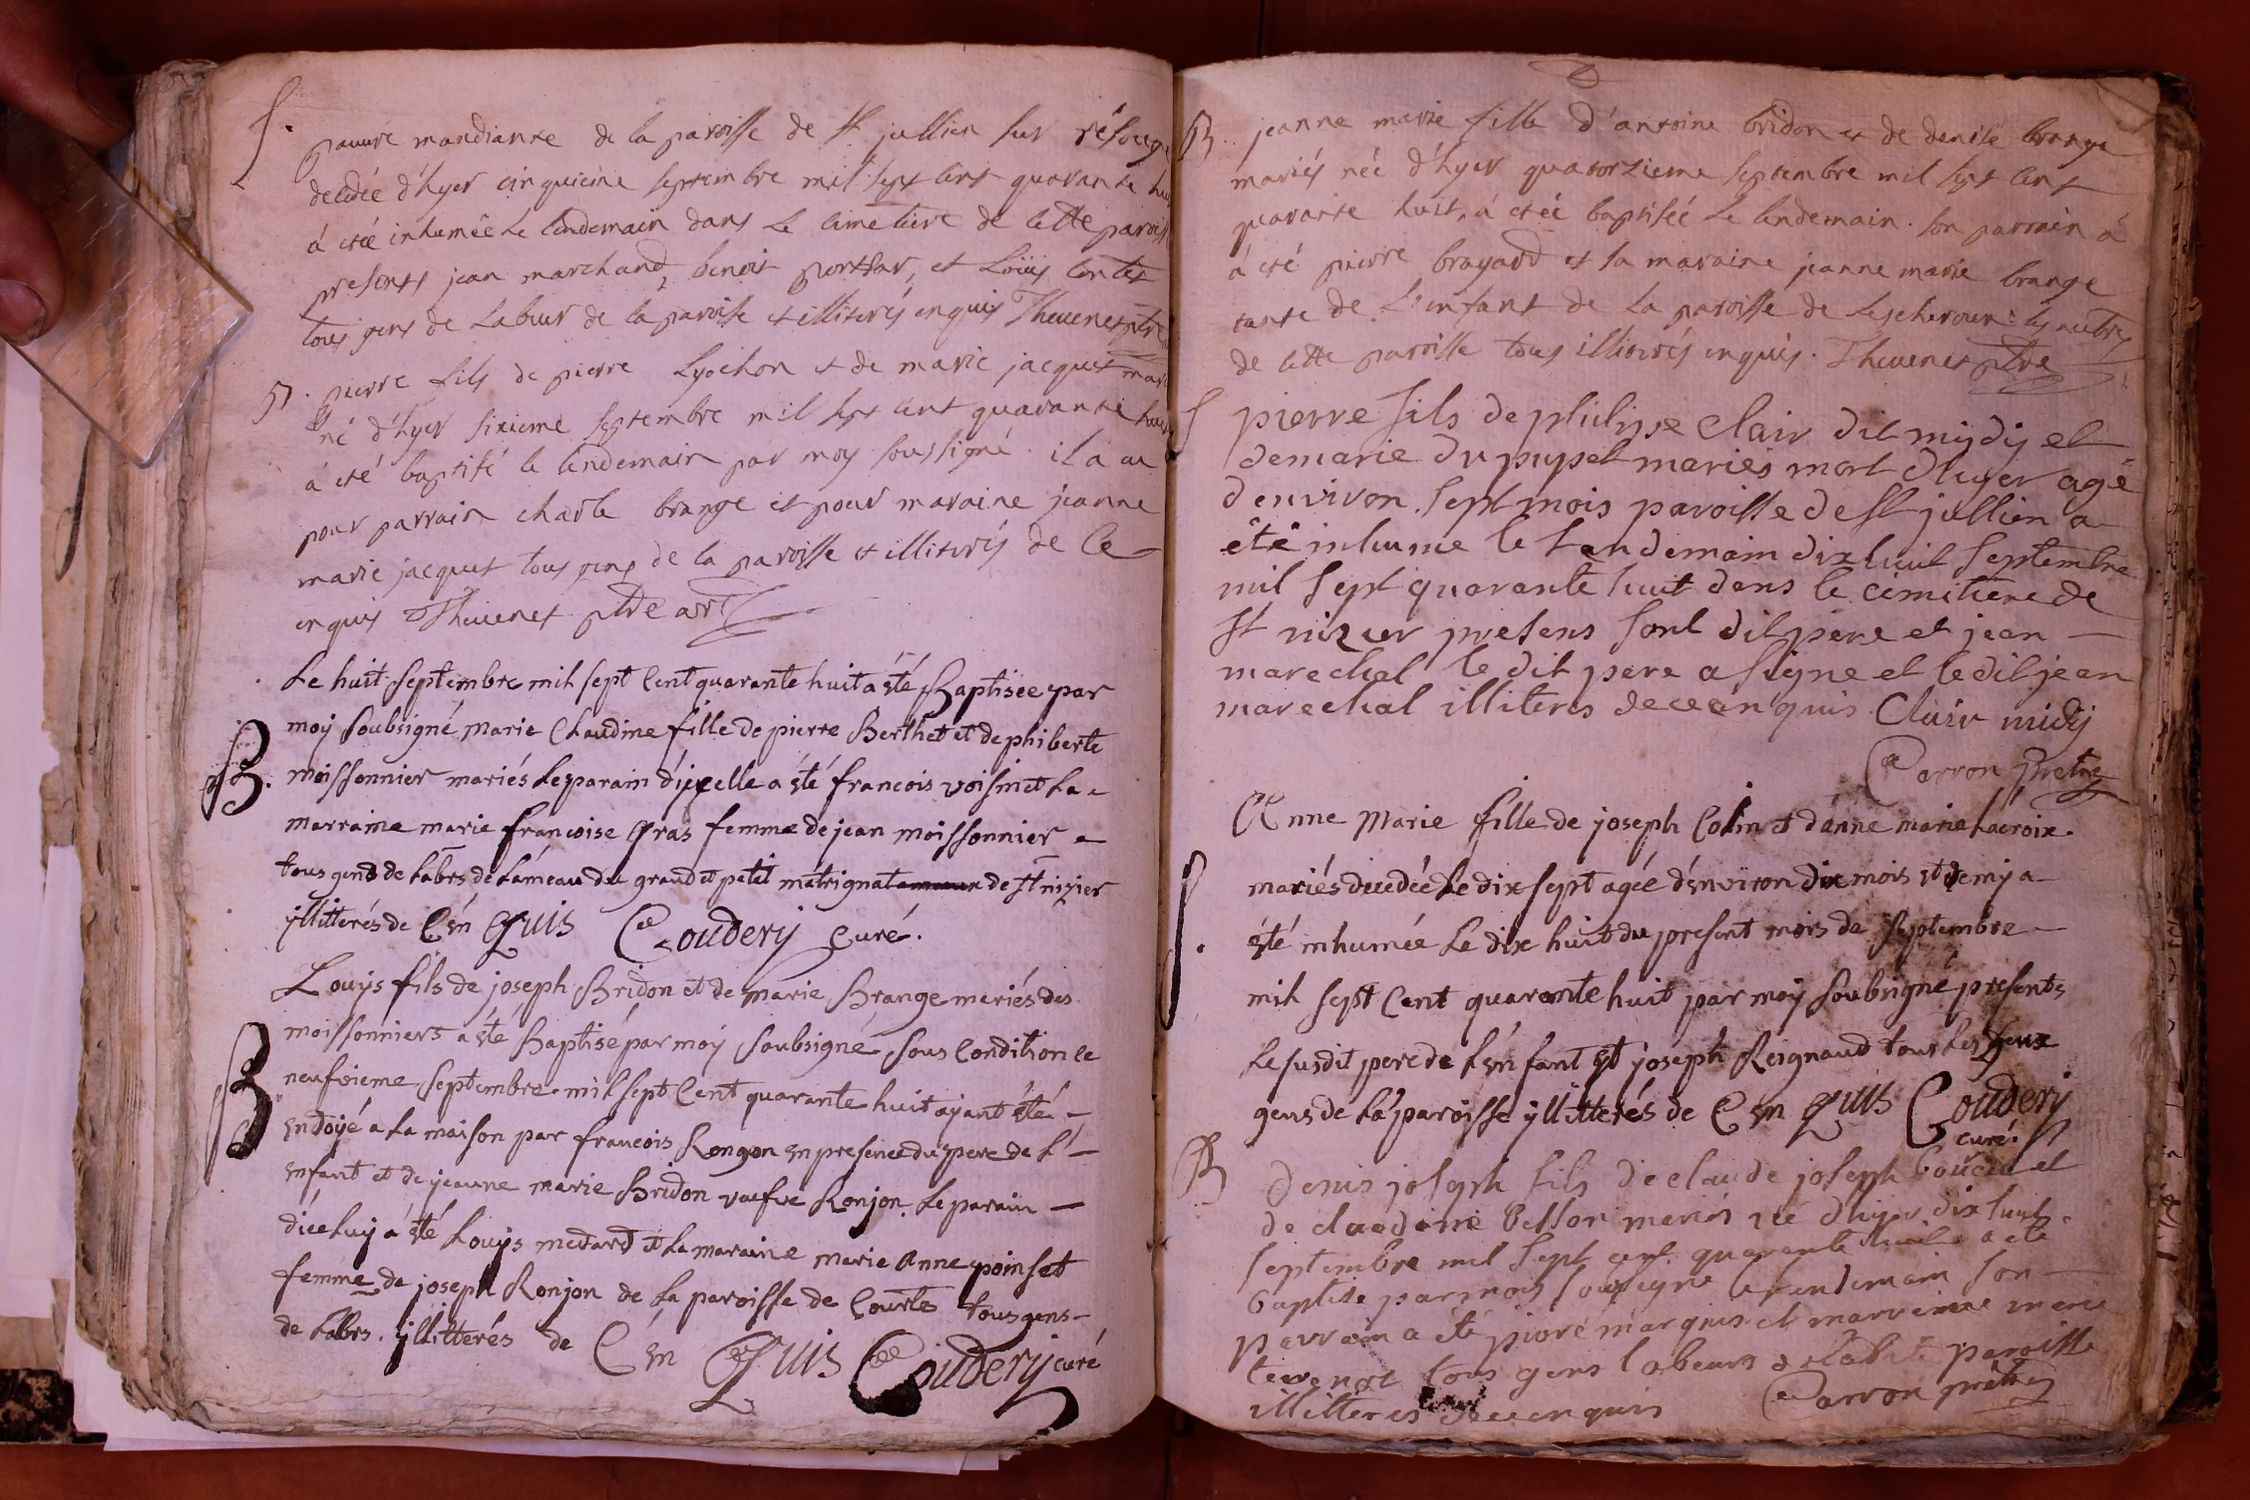 S.
pauvre mandiante de la paroisse de st jullien sur résouze
decedée d'hyer cinquieme septembre mil sept cent quarante huit
á eté inhumée le lendemain dans le cimetiere de cette paroisse
presents jean marchand, benoit porthar, et Loüis
tous gens de Labeur de la paroisse et illiterés enquis Thevenet ptre
B. pierre fils de pierre Lyochon et de marie jacquet mariés
né d'hyer sixieme septembre mil sept cent quarante huit
á eté baptisé le lendemain par moy soussigné. il a eu
pour parrain charle brange et pour maraine jeanne
marie jacquet tous gens de la paroisse et illiterés de ce
enquis Thevenet ptre
Le huit septembre mil sept Cent quarante huit á été Baptisée par
moÿ soubsigné Marie Claudine fille de pierre Berthet et de phiberte
B. moissonnier mariés Le parain d'ycelle a été francois voisin et La
marraine marie francoise Gras femme de jean moissonnier
tous gens de Labrs de Láméau du grand et petit matrignat de st nizier
ÿllitterés de C én Quis Couderÿ Curé.
Louÿs fils de joseph Bridon et de marie Brange mariés des
moissonniers á été Baptisé par moÿ soubsigné, sous Condition le
B neufvieme septembre mil sept Cent quarante huit aÿant été
endoÿé a La maison par francois Rongon en presence du pere de L'
enfant et de jeanne marie Bridon vuefve Ronjon. Le parain
diceluÿ á été Louÿs medard et La maraine marie Anne poinset
femme de joseph Ronjon de La paroisse de Courtes tous gens
de Labrs. ÿllitterés de C én Quis Couderÿ curé
B. jeanne marie fille d'antoine bridon et de denise brange
mariés née d'hyer quatorzieme septembre mil sept cent
quarante huit, á etée baptisée le lendemain. son parrain á
á eté pierre brayard et sa maraine jeanne marie brange
tante de L'enfant de La paroisse de Lescheroux les autres
de cette paroisse tous illiterés enquis. Thevenet ptre
S pierre fils de philippe Clair dit mydy et
de marie du pupet mariés mort dhyer agé
denviron sept mois paroisse de st jullien a
été inhume le Lendemain dix huit septembre
mil sept quarante huit dans le cimitiere de
st nizier presens sont dit pere et jean
marechal le dit pere a signe et le dit jean
marechal illiteres de ce enquis Clair midy
Carron prêtre
Anne Marie fille de joseph Colin et d'anne marie Lacroix
mariés decedée Le dix sept agée d'énviron dix mois et demy a
S. été inhumée Le dix huit du present mois de septembre
mil sept Cent quarante huit par moÿ soubsigné presents
Le susdit pere de L'énfant et joseph Reignaud tous Les deux
gens de La paroisse ÿllitterés de C en Quis Couderÿ
curé.
B Denis joseph fils de claude joseph et
de claudine besson mariés né dhyer dix huit
septembre mil sept cent quarante huit a ete
baptise par moy soussigne le lendemain son
parrain a eté piere marquis et marreine marie
tevenet tous gens labeurs de la paroisse
illitteres de ce enquis Carron prêtre